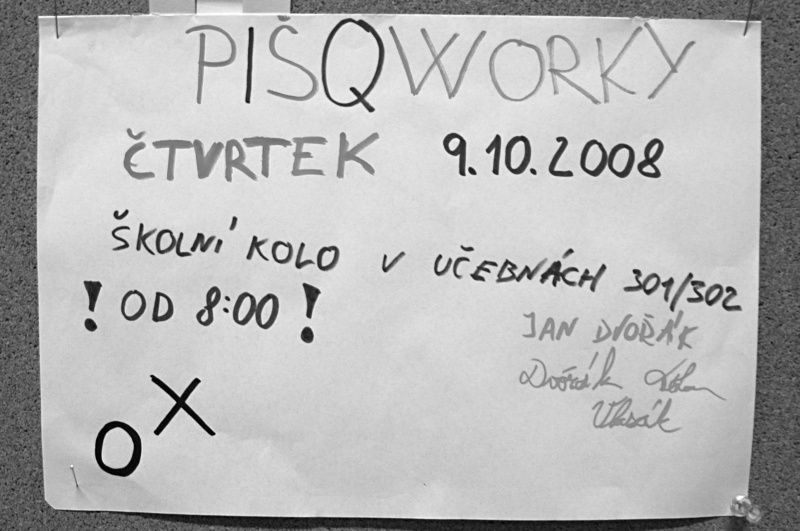 PIŠQWORKY
ČTVRTEK 9.10.2008
ŠKOLNÍ KOLO V UČEBNÁCH 301/302
! OD 8:00 !
JAN DVOŘÁK
Dvořák
O X